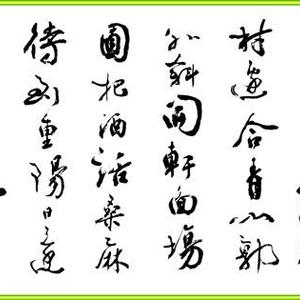 村邊合青山郭
外斜開軒面場
圃把酒話桑麻
待到重陽日還